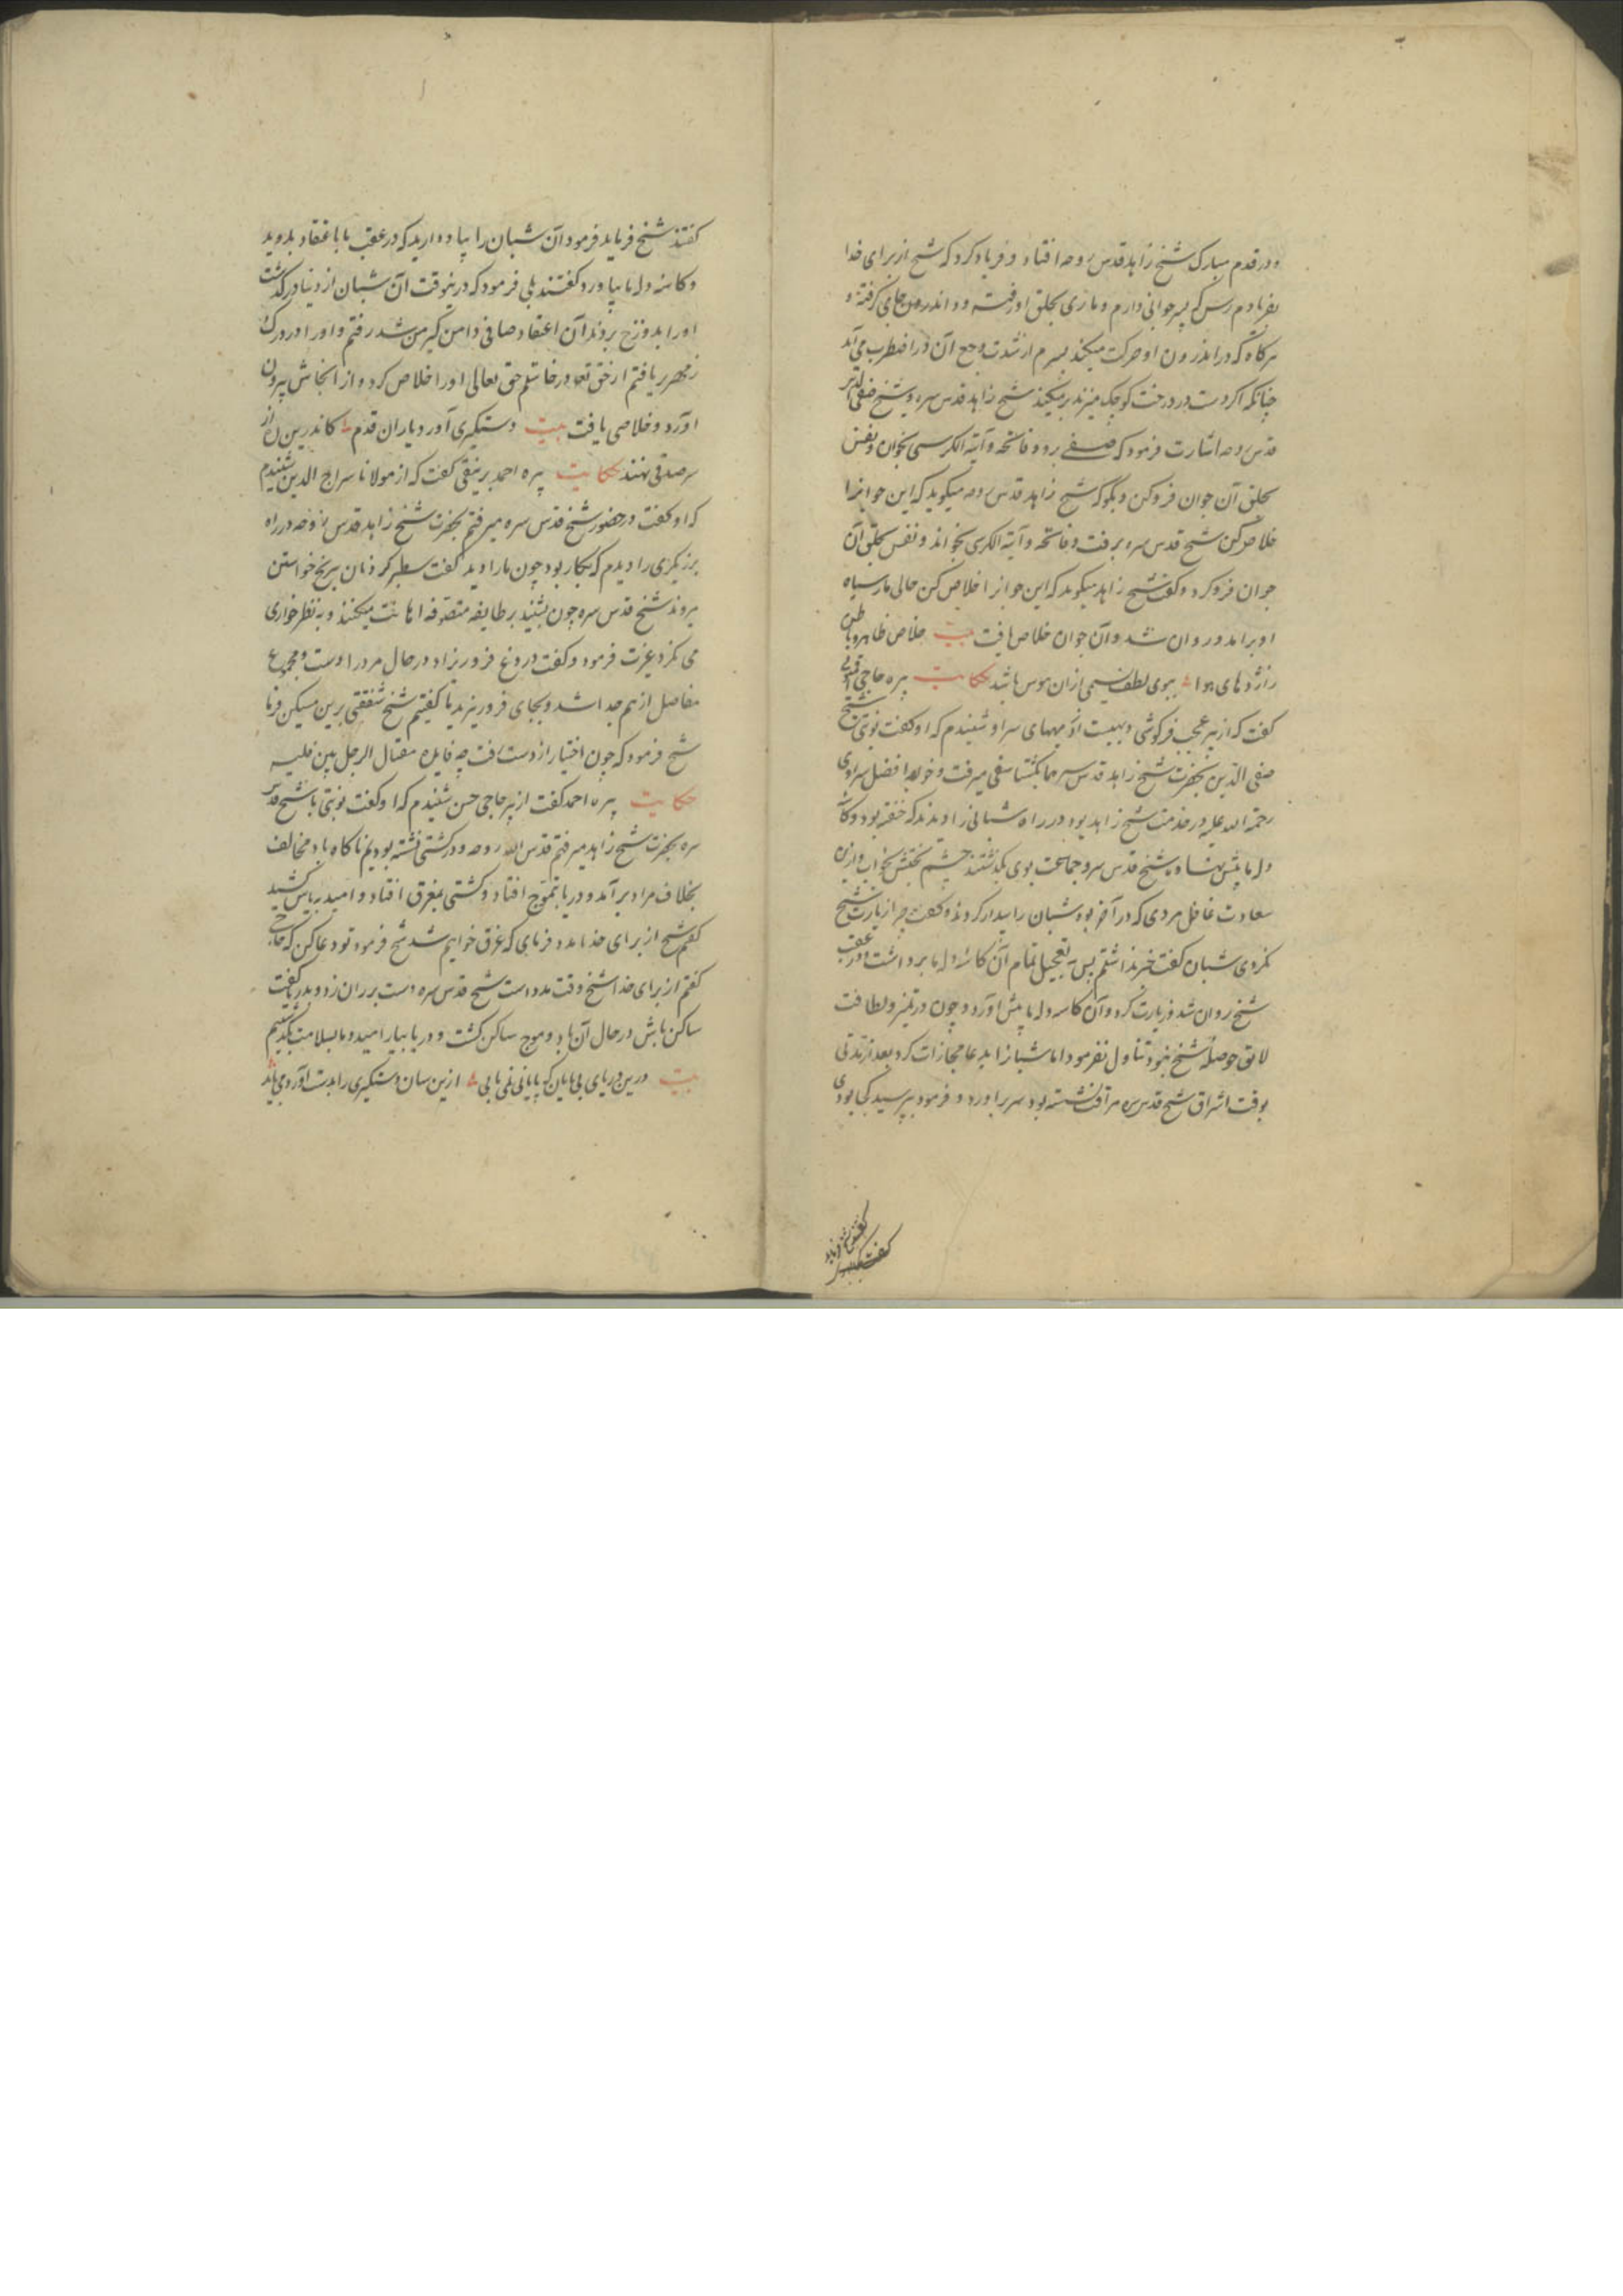 و در قدم مبارک شیخ زاهد قدس روحه افتاد و فریاد کرد که شیخ از برای خدا
بفریادم رس که پسر جوانی دارم و ماری بحلق او رفته و در اندرون جای گرفته و
هرگاه که در اندرون او حرکت میکند پسرم از شدت وجع آن در اضطراب می آید
چنانکه اگر دست در درخت کوچک میزند بر میکند شیخ زاهد قدس سره و شیخ صفی الدین
قدس روحه اشارت فرمود که صفی برو و فاتحه و آیة الکرسی بخوان و نفس
بحلق آن جوان فرو کن و بگو که شیخ زاهد قدس روحه میگوید که این جوانرا
خلاص کن شیخ قدس سره برفت و فاتحه و آیة الکرسی بخواند و نفس بحلق آن
جوان فرو کرد و گفت شیخ زاهد میگوید که این جوانرا خلاص کن حالی مار سیاه
او برآمد و روان شد و آن جوان خلاص یافت بیت خلاص ظاهر و باطن
ز اژدهای هوا ببوی لطف نسیمی ازان هوس باشد حکایت پیره حاجی
گفت که از پیر عجب فرکوشی و سراو شنیدم که او گفت نوبتی شیخ
صفی الدین بحضرت شیخ زاهد قدس سرهما میرفت و خواجه افضل سراوی
رحمة الله علیه در خدمت شیخ زاهد بود در راه شبانی را دیدند که خفته بود و کاسه
دله با پیش نهاده شیخ قدس سره و جماعت بوی بگذشتند چشم بختش بخواب و ازین
سعادت غافل مردی که در آخر بود شبان را بیدار کرد و گفت چرا زیارت شیخ
نکردی شبان گفت خبر نداشتم پس بتعجیل تمام آن کاسه دله با برداشت و در عقب
شیخ روان شد و زیارت کرد و آن کاسه دله با پیش آورد و چون در تمیز و لطافت
لایق حوصله شیخ نبود تناول نفرمود اما شبانرا بدعا مجازات کرد بعد از مدتی
بوقت اشراق شیخ قدس سره مراقب نشسته بود سر برآورد و فرمود بپرسید کجا بودی
گفتند شیخ فرماید فرمود آن شبان را بیاد دارید که در عقب ما باعتقاد بدوید
و کاسه دله با بیاورد گفتند بلی فرمود که درینوقت آن شبان از دنیا درگذشت
او را بدوزخ بردند آن اعتقاد صافی دامن گیر من شد رفتم و او را در درک
زمهریر یافتم از حق تعالی درخواستم حق تعالی او را خلاص کرد و از انجاش بیرون
آورد و خلاصی یافت بیت دستگیری آورد یاران قدم کاندرین راه از
سر صدقی نهند حکایت پیره احمد برینقی گفت که از مولانا سراج الدین شنیدم
که او گفت در حضور شیخ قدس سره میرفتم بحضرت شیخ زاهد قدس روحه در راه
برزیگری را دیدم که بکار بود چون ما را دید گفت بنان برنج خواستن
میروند شیخ قدس سره چون بشنید بر طایفه متصوفه اهانت میکنند و بنظر خواری
می نگرد غیرت فرمود و گفت دروغ فرو ریزاد در حال مرد را دست و مجموع
مفاصل از هم جدا شد و بجای فرو ریزید ما گفتیم شیخ شفقتی برین مسکین فرما
شیخ فرمود که چون اختیار از دست رفت چه فایده مقتال الرجل بین فکیه
حکایت پیره احمد گفت از پیر حاجی حسن شنیدم که او گفت نوبتی با شیخ قدس
سره بحضرت شیخ زاهد میرفتم قدس الله روحه و در کشتی نشسته بودیم ناگاه باد مخالف
بخلاف مراد برآمد و دریا بتموج افتاد و کشتی بغرق افتاد و امید بیاس کشید
گفتم شیخ از برای خدا مدد فرمای که غرق خواهیم شد شیخ فرمود تو دعا کن که حاجی
گفتم از برای خدا شیخ وقت مدد است شیخ قدس سره دست بر ران زد و بدریا گفت
ساکن باش در حال آن باد و موج ساکن گشت و دریا بیارامید و ما بسلامت بگذشتیم
بیت درین دریای بی پایان که پایانی نمی یابی ازین سان دستگیری را بدست آورد می باید
گفتند شیخ فرماید